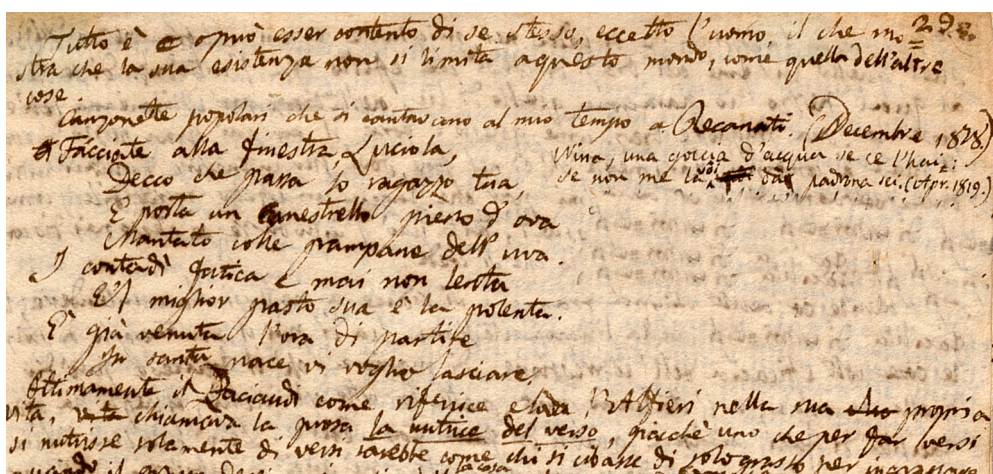 29.
Tutto è o può esser contento di se stesso, eccetto l'uomo, il che mo=
stra che la sua esistenza non si limita a questo mondo, come quella dell'altre
cose.
Canzonette popolari che si cantavano al mio tempo a Recanati. (Decembre 1818.)
Facciate alla finestra, Luciola,
Decco che passa lo ragazzo tua,
E porta un canestrello pieno d'ova
Mantato colle frampane dell'uva.
I contadì fatica e mai non lenta
E 'l miglior pasto sua è la polenta.
È già venuta l'ora di partire
In santa pace vi voglio lasciare.
Nina, una goccia d'acqua se ce l'hai:
Se non me la vôi da padrona sei. (Apr. 1819.)
Ottimamente il Paciaudi come riferisce e loda l'Alfieri nella sua propria
vita, chiamava la prosa la nutrice del verso, giacchè uno che per far versi
si nutrisse solamente di versi sarebbe come chi si cibasse di solo grasso per ingrassare
quando il